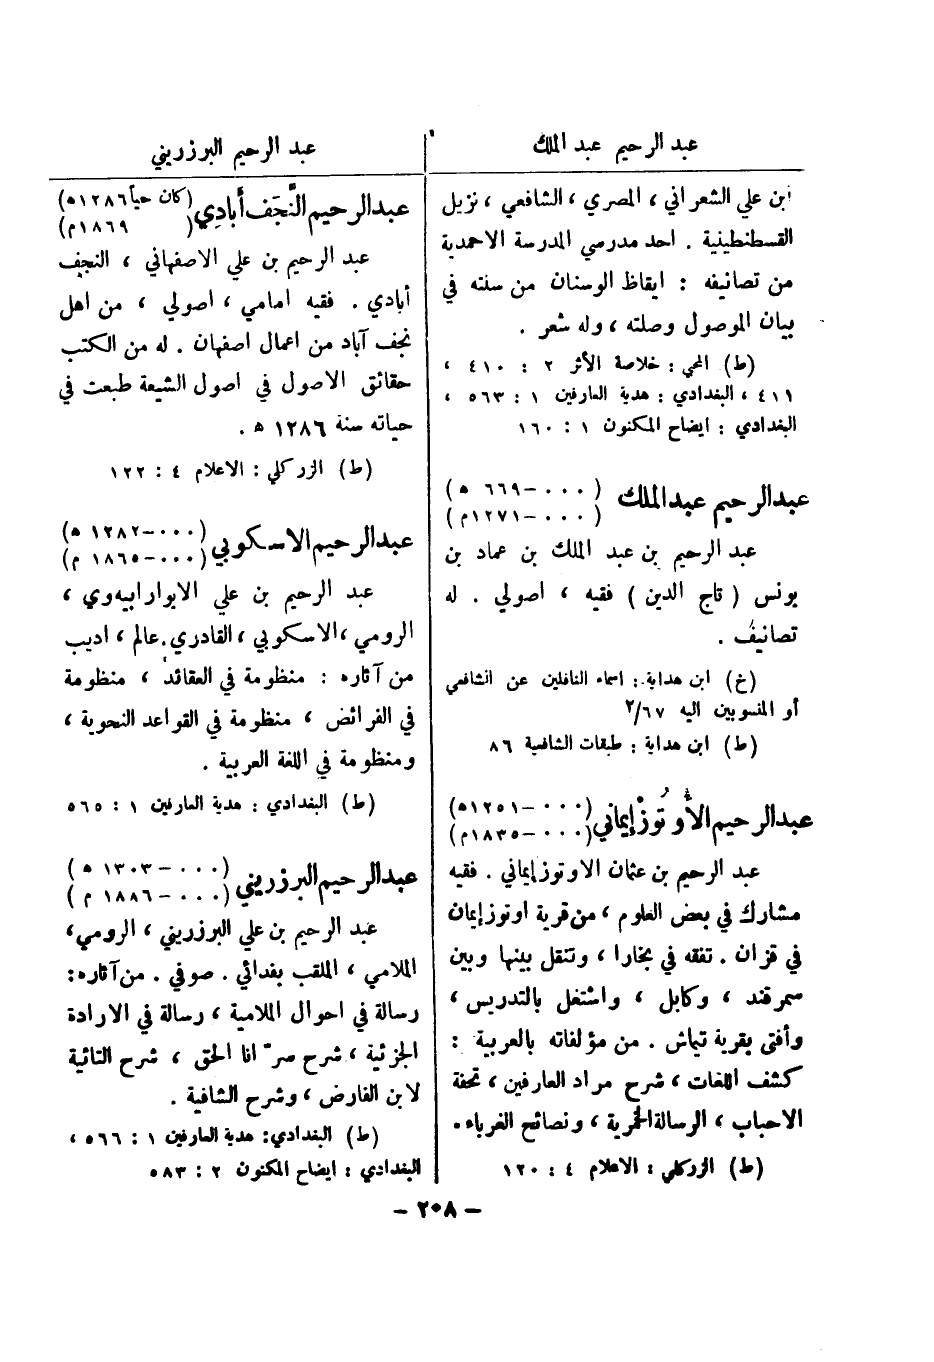 عبد الرحيم عبد الملك
ابن علي الشعراني ، المصري ، الشافعي ، نزيل
القسطنطينية . احد مدرسي المدرسة الاحمدية
من تصانيفه : ايقاظ الوسنان من سنته في
بيان الموصول وصلته ، وله شعر .
(ط) المحبي : خلاصة الأثر ٢ : ٤١٠ ،
٤١١ ، البغدادي : هدية العارفين ١ : ٥٦٣ ،
البغدادي : ايضاح المكنون ١ : ١٦٠
عبد الرحيم عبد الملك (٠٠٠-٦٦٩ هـ)
(٠٠٠-١٢٧١م)
عبد الرحيم بن عبد الملك بن عماد بن
يونس ( تاج الدين ) فقيه ، اصولي . له
تصانيف .
(خ) ابن هداية : اسماء الناقلين عن الشافعي
أو المنسوبين اليه ٢/٦٧
(ط) ابن هداية : طبقات الشافعية ٨٦
عبد الرحيم الأوتوز إيماني (٠٠٠-١٢٥١هـ)
(٠٠٠-١٨٣٥م)
عبد الرحيم بن عثمان الاوتوز إيماني . فقيه
مشارك في بعض العلوم ، من قرية اوتوز إيمان
في قزان . تفقه في بخارا ، وتنقل بينها وبين
سمرقند ، وكابل ، واشتغل بالتدريس ،
وأفتى بقرية تيماش . من مؤلفاته بالعربية :
كشف اللغات ، شرح مراد العارفين ، تحفة
الاحباب ، الرسالة الخمرية ، ونصائح الغرباء .
(ط) الزركلي : الاعلام ٤ : ١٢٠
عبد الرحيم البرزريني
عبد الرحيم النَّجَف أبادِي (كان حياً ١٢٨٦هـ)
( ١٨٦٩م)
عبد الرحيم بن علي الاصفهاني ، النجف
أبادي . فقيه امامي ، اصولي ، من اهل
نجف آباد من اعمال اصفهان . له من الكتب
حقائق الاصول في اصول الشيعة طبعت في
حياته سنة ١٢٨٦ هـ .
(ط) الزركلي : الاعلام ٤ : ١٢٢
عبد الرحيم الاسكوبي (٠٠٠-١٢٨٢ هـ)
(٠٠٠-١٨٦٥ م)
عبد الرحيم بن علي الايوارابيهوي ،
الرومي ، الاسكوبي ، القادري . عالم ، اديب
من آثاره : منظومة في العقائد ، منظومة
في الفرائض ، منظومة في القواعد النحوية ،
ومنظومة في اللغة العربية .
(ط) البغدادي : هدية العارفين ١ : ٥٦٥
عبد الرحيم البرزريني (٠٠٠-١٣٠٣ هـ)
(٠٠٠-١٨٨٦ م)
عبد الرحيم بن علي البرزريني ، الرومي ،
الملامي ، الملقب بفدائي . صوفي . من آثاره :
رسالة في احوال الملامية ، رسالة في الارادة
الجزئية ، شرح سرّ انا الحق ، شرح التائية
لابن الفارض ، وشرح الشافية .
(ط) البغدادي : هدية العارفين ١ : ٥٦٦ ،
البغدادي : ايضاح المكنون ٢ : ٥٨٣
- ٢٠٨ -